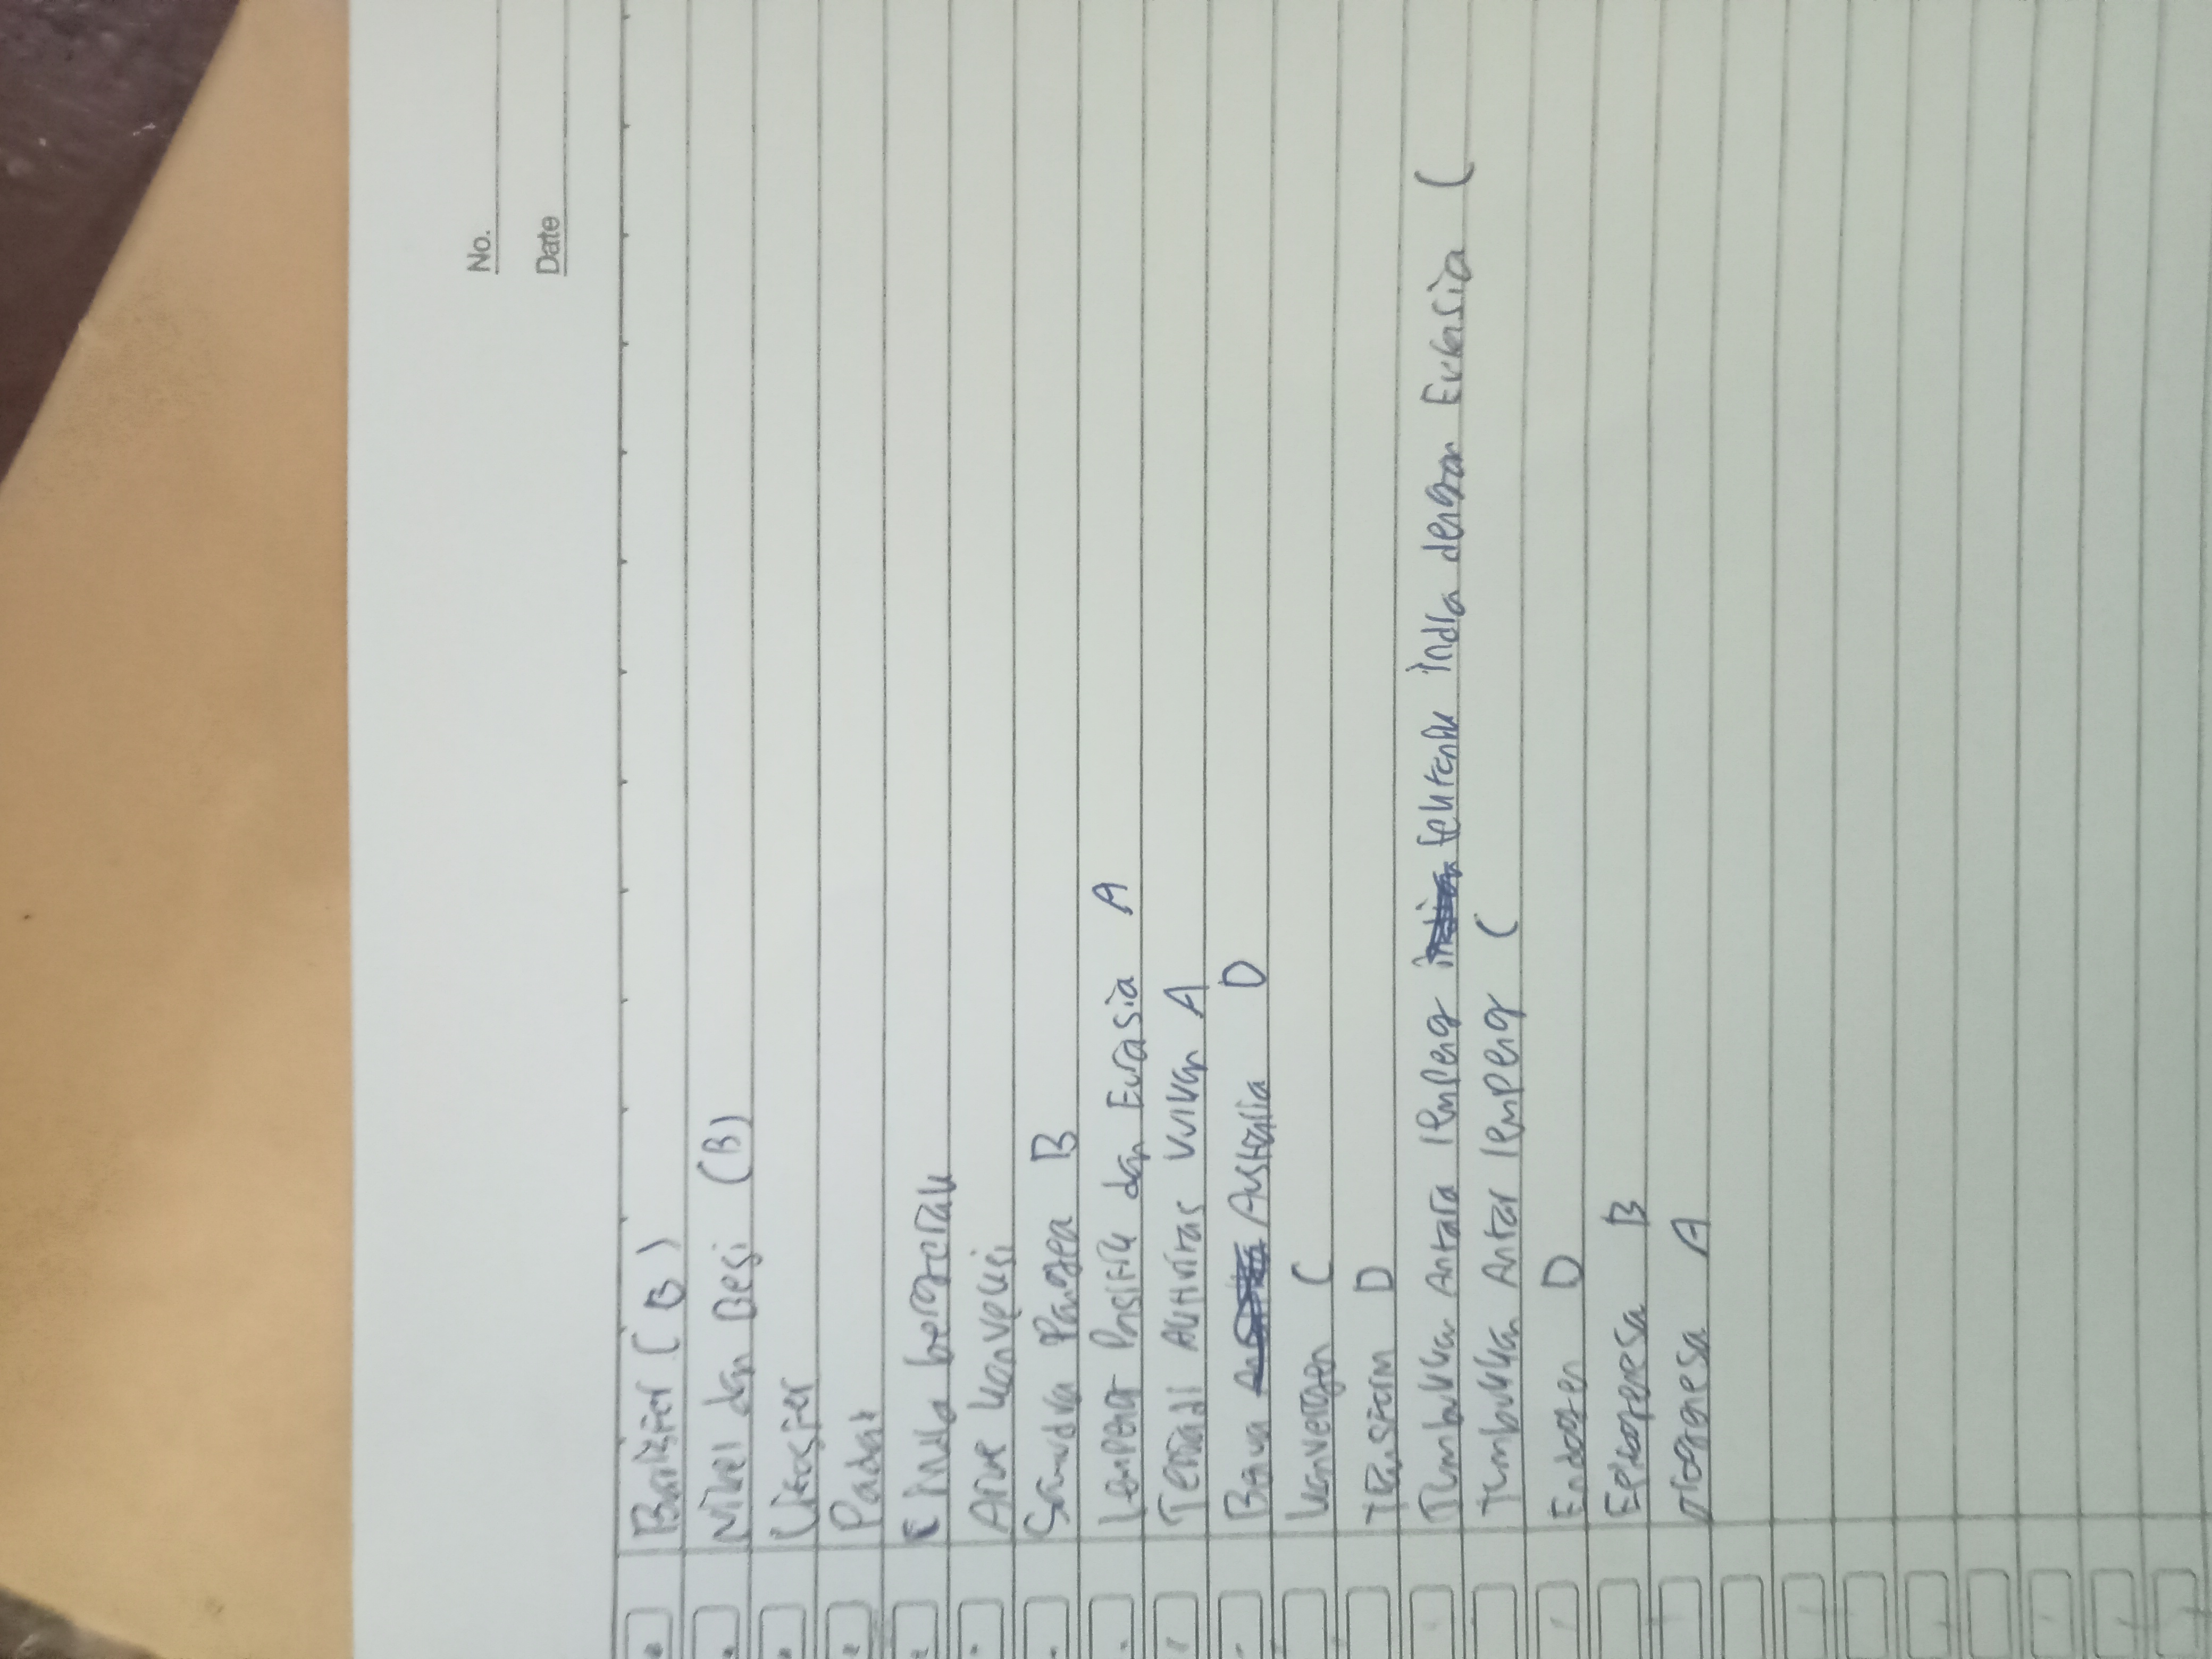 No.
Date
Barisfer (B)
Nikel dan Besi (B)
Litosfer
Padat
India bergerak
Arus konveksi
Samudra Pangea B
Lempeng Pasifik dan Eurasia A
Terjadi Aktivitas vulkan A
Benua Australia D
Konvergen C
Transform D
Tumbukkan Antara lempeng tektonik india dengan Eurasia C
Tumbukkan Antar lempeng C
Endogen D
Epirogenesa B
A